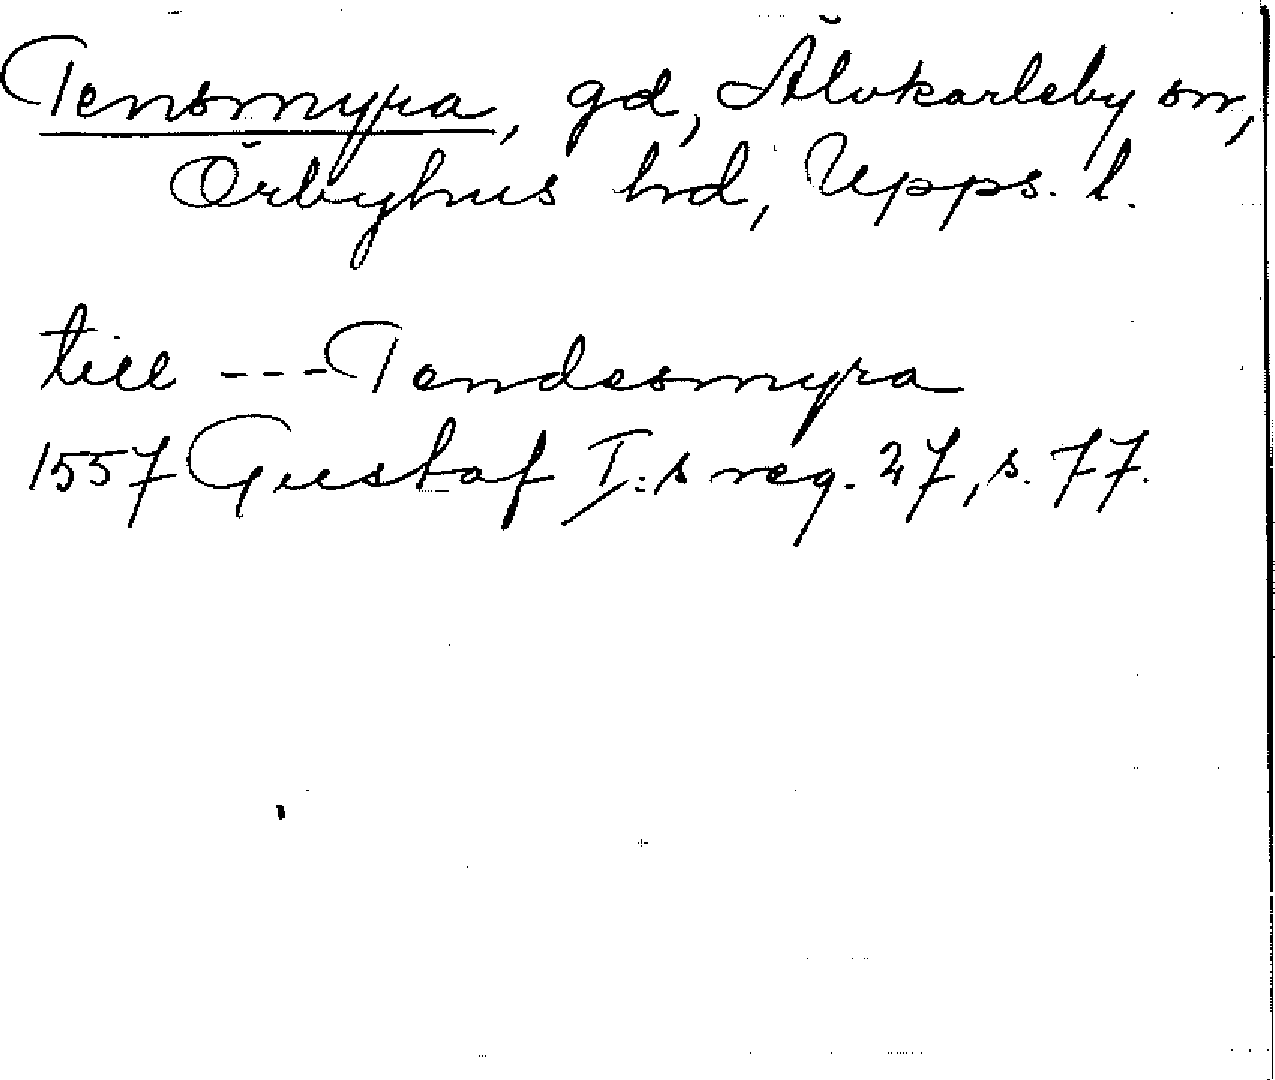 Tensmyra, gd, Älvkarleby sn,
Örbyhus hd, Upps. l.
till --- Tendesmyra
1557 Gustaf I:s reg. 27, s. 77.